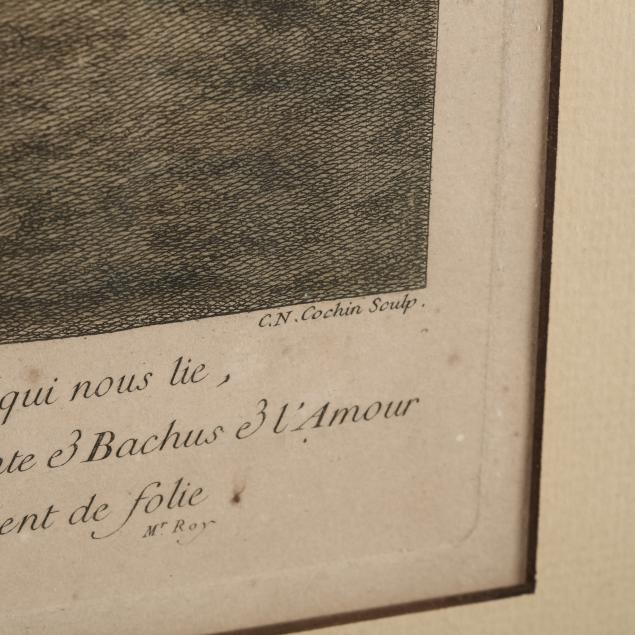 C.N. Cochin Sculp.
qui nous lie,
te & Bachus & l'Amour
ent de folie
Mr Roy